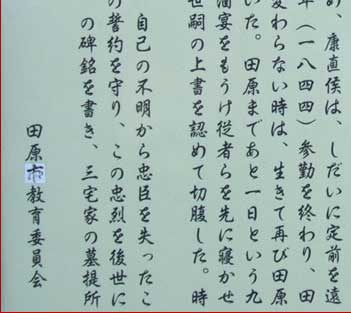 め、康直侯は、しだいに定前を遠
年(一八四四)参勤を終わり、田
変わらない時は、生きて再び田原
いた。田原まであと一日という九
酒宴をもうけ従者らを先に寝かせ
世嗣の上書を認めて切腹した。時
自己の不明から忠臣を失ったこ
の誓約を守り、この忠烈を後世に
の碑銘を書き、三宅家の墓提所
田原市教育委員会